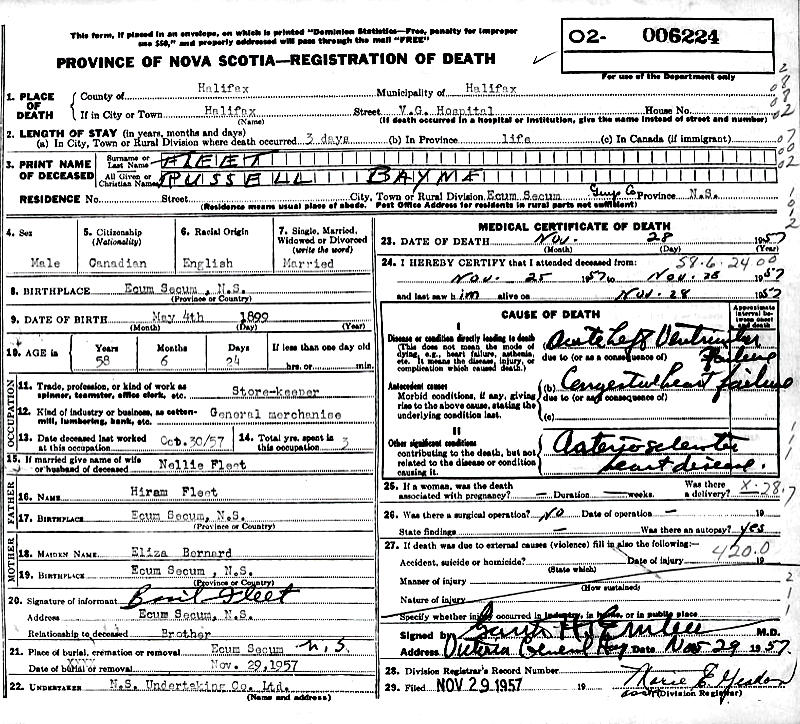 This form, if placed in an envelope, on which is printed "Dominion Statistics—Free, penalty for improper
use $50," and properly addressed will pass through the mail "FREE"
PROVINCE OF NOVA SCOTIA—REGISTRATION OF DEATH
02- 006224
For use of the Department only
1. PLACE OF DEATH
County of Halifax Municipality of Halifax
If in City or Town Halifax Street V.G. Hospital House No.
(Name) (If death occurred in a hospital or institution, give the name instead of street and number)
2. LENGTH OF STAY (in years, months and days)
(a) In City, Town or Rural Division where death occurred 3 days (b) In Province life (c) In Canada (if immigrant)
3. PRINT NAME OF DECEASED
Surname or Last Name FLEET
All Given or Christian Names RUSSELL BAYNE
RESIDENCE No. Street City, Town or Rural Division Ecum Secum Guys Co Province N.S.
(Residence means usual place of abode. Post Office Address for residents in rural parts not sufficient)
4. Sex
Male
5. Citizenship (Nationality)
Canadian
6. Racial Origin
English
7. Single, Married, Widowed or Divorced (write the word)
Married
8. BIRTHPLACE Ecum Secum, N.S.
(Province or Country)
9. DATE OF BIRTH May 4th 1899
(Month) (Day) (Year)
10. AGE in Years Months Days If less than one day old
58 6 24 hrs. or min.
OCCUPATION
11. Trade, profession, or kind of work as spinner, teamster, office clerk, etc. Store-keeper
12. Kind of industry or business, as cotton-mill, lumbering, bank, etc. General merchanise
13. Date deceased last worked at this occupation Oct.30/57
14. Total yrs. spent in this occupation 3
15. If married give name of wife or husband of deceased Nellie Fleet
FATHER
16. NAME Hiram Fleet
17. BIRTHPLACE Ecum Secum, N.S.
(Province or Country)
MOTHER
18. MAIDEN NAME Eliza Bernard
19. BIRTHPLACE Ecum Secum, N.S.
(Province or Country)
20. Signature of informant Basil Fleet
Address Ecum Secum, N.S.
Relationship to deceased Brother
21. Place of burial, cremation or removal Ecum Secum N.S.
XXXX
Date of burial or removal Nov. 29,1957
22. UNDERTAKER N.S. Undertaking Co. Ltd.
(Name and address)
MEDICAL CERTIFICATE OF DEATH
23. DATE OF DEATH Nov. 28 1957
(Month) (Day) (Year)
24. I HEREBY CERTIFY that I attended deceased from: 58.6.24.00
Nov. 25 1957 to Nov. 28 1957
and last saw him alive on Nov. 28 1957
CAUSE OF DEATH
Approximate interval between onset and death
I
Disease or condition directly leading to death
(This does not mean the mode of dying, e.g., heart failure, asthenia, etc. It means the disease, injury, or complication which caused death.)
Acute left Ventricular failure
due to (or as a consequence of)
Antecedent causes
Morbid conditions, if any, giving rise to the above cause, stating the underlying condition last.
(b) Congestive heart failure
due to (or as a consequence of)
(c)
II
Other significant conditions
contributing to the death, but not related to the disease or condition causing it.
Arteriosclerotic heart disease.
25. If a woman, was the death associated with pregnancy? — Duration — weeks. Was there a delivery? X-28.7
26. Was there a surgical operation? NO Date of operation — 19
State findings — Was there an autopsy? yes
27. If death was due to external causes (violence) fill in also the following:—
420.0
Accident, suicide or homicide? Date of injury 19
(State which)
Manner of injury
(How sustained)
Nature of injury
Specify whether injury occurred in industry, in home, or in public place
Signed by M.D.
Address Victoria General Hosp Date Nov 29 1957.
28. Division Registrar's Record Number
29. Filed NOV 29 1957 19
(Division Registrar)